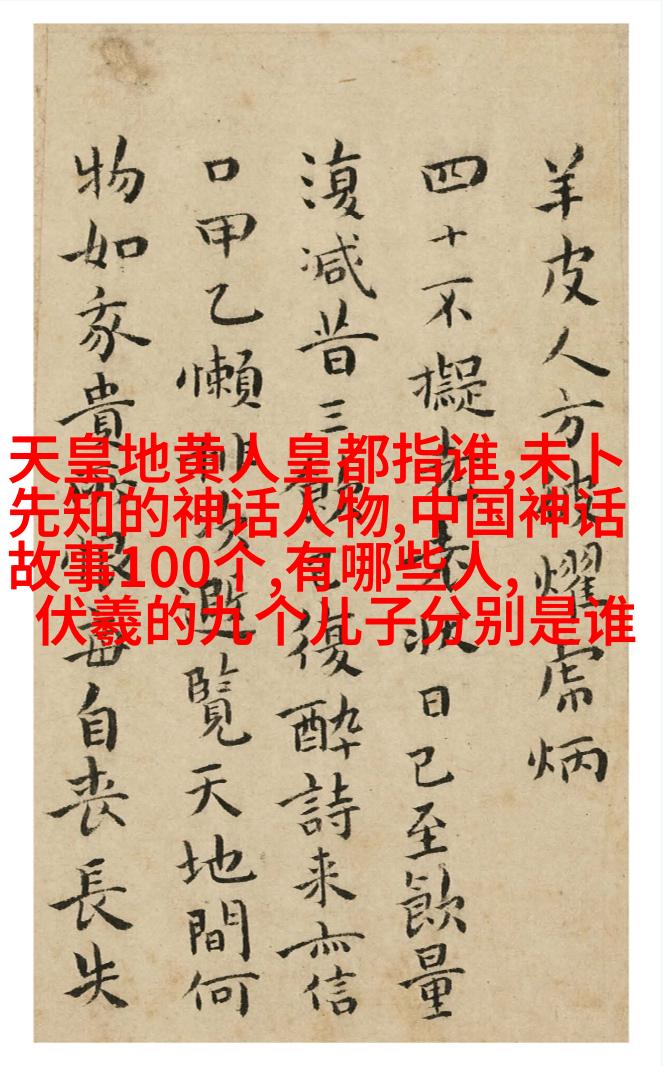 天皇地黄人皇都指谁,未卜
先知的神话人物,中国神话
故事100个,有哪些人,
伏羲的九个儿子分别是谁
羊皮人方被耀虎炳
四十不擬日已至飲量
復減昔三飲已復醉詩来亦信
口甲乙懶非次避覽天地間何
物如豕貴自丧長失